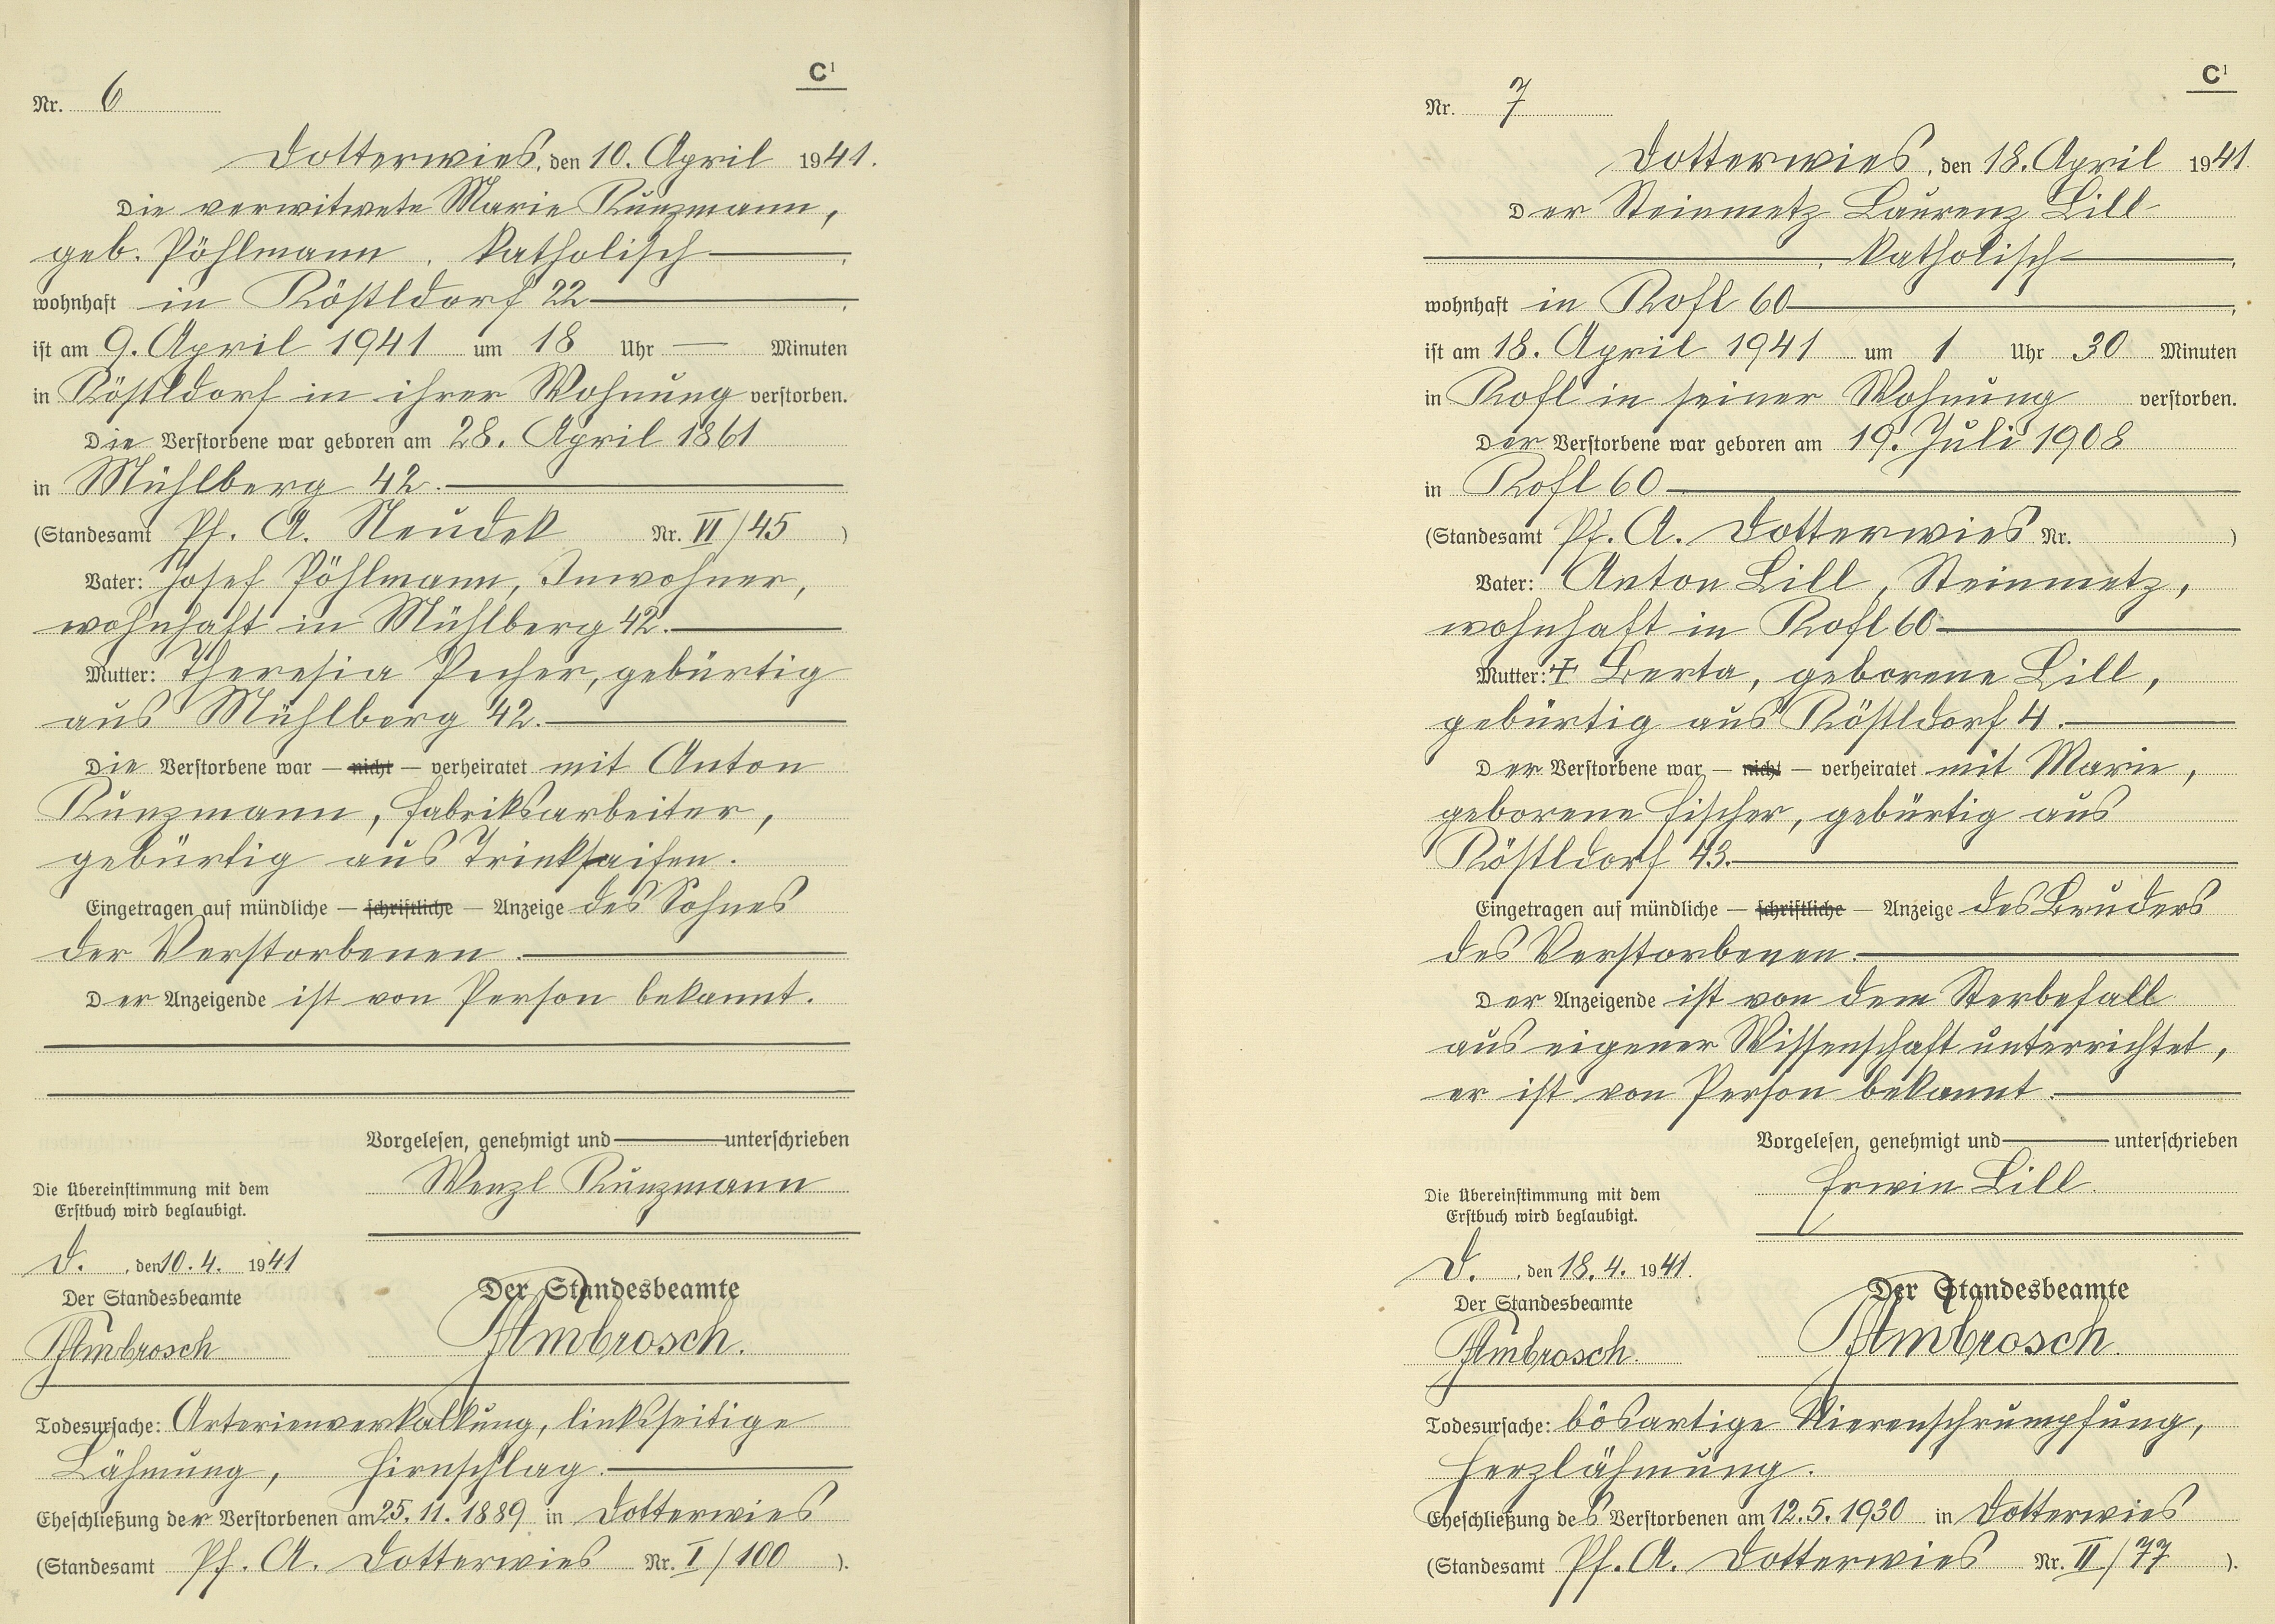 C¹
Nr. 6
Dotterwies, den 10. April 1941.
Die verwitwete Marie Kunzmann,
geb. Pöhlmann, katholisch
wohnhaft in Köstldorf 22
ist am 9. April 1941 um 18 Uhr — Minuten
in Köstldorf in ihrer Wohnung verstorben.
Die Verstorbene war geboren am 28. April 1861
in Mühlberg 42.
(Standesamt Pf. A. Neudek Nr. VI/45 )
Vater: Josef Pöhlmann, Inwohner,
wohnhaft in Mühlberg 42.
Mutter: Theresia Pecher, gebürtig
aus Mühlberg 42.
Die Verstorbene war — nicht — verheiratet mit Anton
Kunzmann, Fabriksarbeiter,
gebürtig aus Trinksaifen.
Eingetragen auf mündliche — schriftliche — Anzeige des Sohnes
der Verstorbenen.
Der Anzeigende ist von Person bekannt.
Vorgelesen, genehmigt und unterschrieben
Wenzl Kunzmann
Die Übereinstimmung mit dem
Erstbuch wird beglaubigt.
D. , den 10. 4. 1941
Der Standesbeamte
Ambrosch
Der Standesbeamte
Ambrosch.
Todesursache: Arterienverkalkung, linksseitige
Lähmung, Hirnschlag.
Eheschließung der Verstorbenen am 25. 11. 1889 in Dotterwies
(Standesamt Pf. A. Dotterwies Nr. I/100 ).
C¹
Nr. 7
Dotterwies, den 18. April 1941
Der Steinmetz Laurenz Lill
, katholisch
wohnhaft in Kofl 60
ist am 18. April 1941 um 1 Uhr 30 Minuten
in Kofl in seiner Wohnung verstorben.
Der Verstorbene war geboren am 19. Juli 1908
in Kofl 60
(Standesamt Pf. A. Dotterwies Nr. )
Vater: Anton Lill, Steinmetz,
wohnhaft in Kofl 60
Mutter: + Berta, geborene Lill,
gebürtig aus Köstldorf 4.
Der Verstorbene war — nicht — verheiratet mit Marie,
geborene Fischer, gebürtig aus
Köstldorf 43.
Eingetragen auf mündliche — schriftliche — Anzeige des Bruders
des Verstorbenen.
Der Anzeigende ist von dem Sterbefall
aus eigener Wissenschaft unterrichtet,
er ist von Person bekannt.
Vorgelesen, genehmigt und unterschrieben
Erwin Lill.
Die Übereinstimmung mit dem
Erstbuch wird beglaubigt.
D. , den 18. 4. 1941.
Der Standesbeamte
Ambrosch.
Der Standesbeamte
Ambrosch.
Todesursache: bösartige Nierenschrumpfung,
Herzlähmung.
Eheschließung des Verstorbenen am 12. 5. 1930 in Dotterwies
(Standesamt Pf. A. Dotterwies Nr. II/77 ).